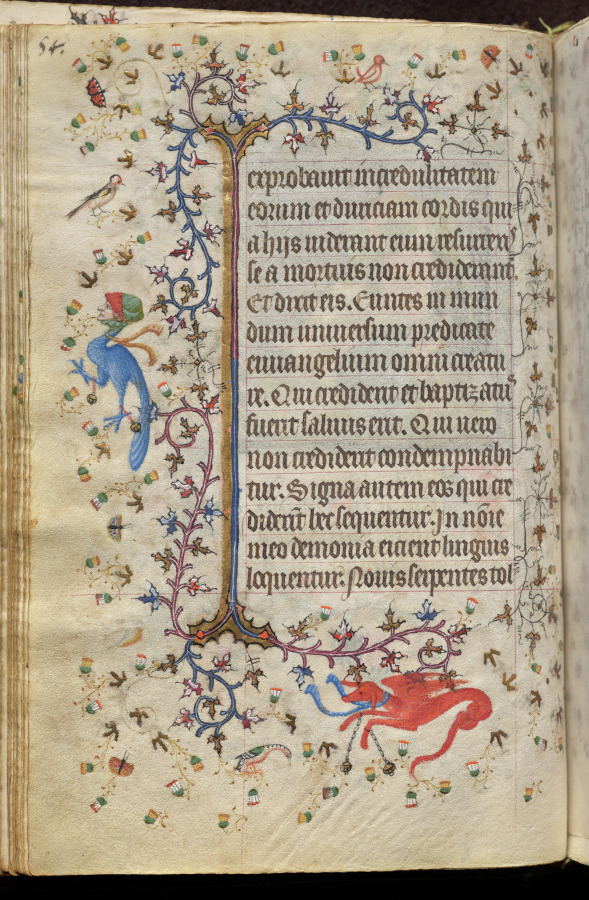 54.
exprobauit incredulitatem
eorum et duriciam cordis qui
a hijs uiderant eum resurrex
se a mortuis non crediderunt.
Et dixit eis. Euntes in mun
dum uniuersum predicate
euuangelium omni creatu
re. Qui crediderit et baptizatus
fuerit saluus erit. Qui uero
non crediderit condempnabi
tur. Signa autem eos qui cre
diderint hec sequentur. In noīe
meo demonia eicient linguis
loquentur. Nouis serpentes tol